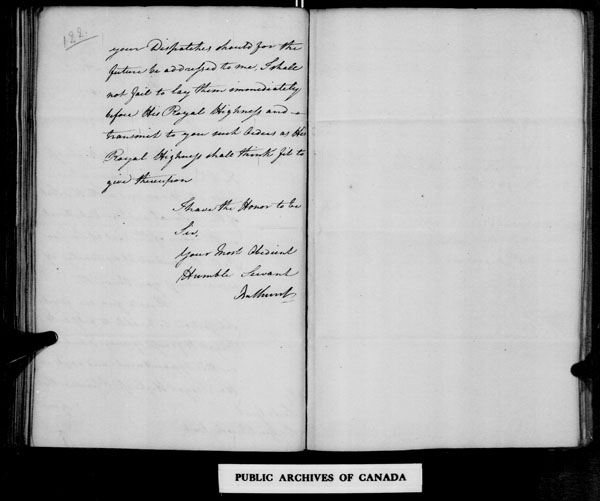 122.
your Dispatches should for the
future be addressed to me, I shall
not fail to lay them immediately
before His Royal Highness and
transmit to you such Orders as His
Royal Highness shall think fit to
give thereupon
I have the Honor to be
Sir,
Your Most Obedient
Humble Servant
Bathurst
PUBLIC ARCHIVES OF CANADA